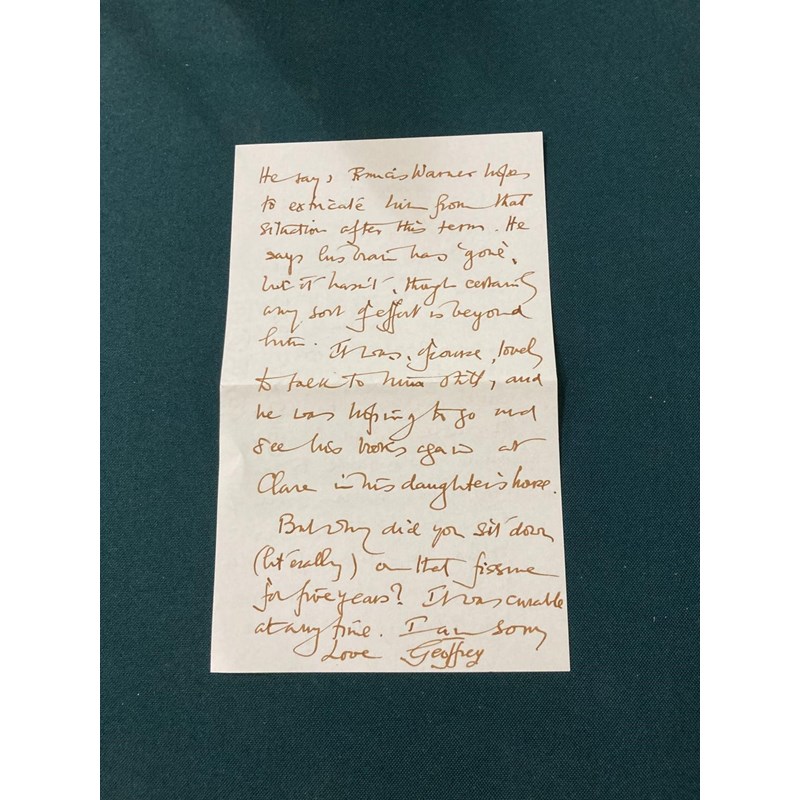 He says Francis Warner hopes
to extricate him from that
situation after this term. He
says his brain has 'gone',
but it hasn't, though certainly
any sort of effort is beyond
him. It was, of course, lovely
to talk to him still, and
he was hoping to go and
see his books again at
Clare in his daughter's house.
But why did you sit down
(literally) on that fissure
for five years? It was curable
at any time. I am sorry
Love Geoffrey